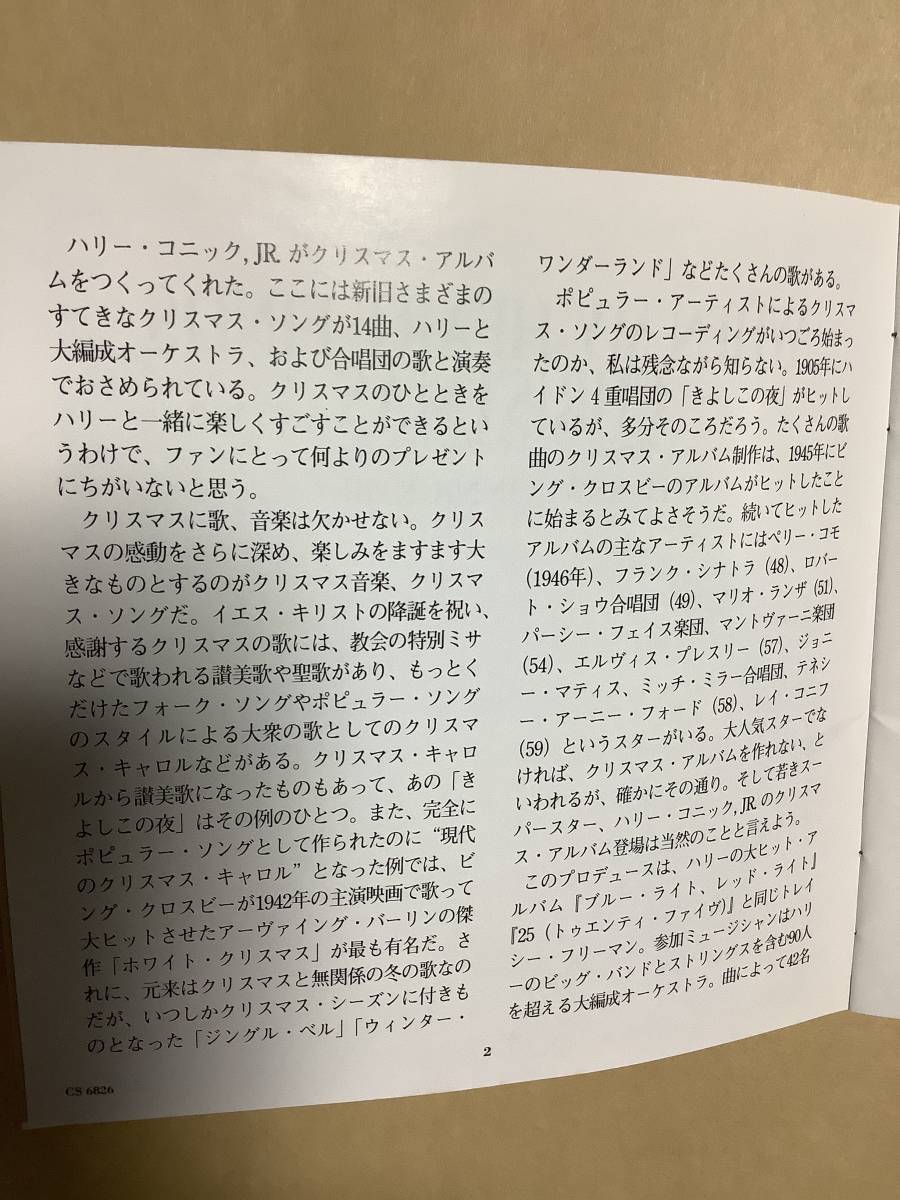 ハリー・コニック,JR.がクリスマス・アルバ
ムをつくってくれた。ここには新旧さまざまの
すてきなクリスマス・ソングが14曲、ハリーと
大編成オーケストラ、および合唱団の歌と演奏
でおさめられている。クリスマスのひとときを
ハリーと一緒に楽しくすごすことができるとい
うわけで、ファンにとって何よりのプレゼント
にちがいないと思う。
クリスマスに歌、音楽は欠かせない。クリス
マスの感動をさらに深め、楽しみをますます大
きなものとするのがクリスマス音楽、クリスマ
ス・ソングだ。イエス・キリストの降誕を祝い、
感謝するクリスマスの歌には、教会の特別ミサ
などで歌われる讃美歌や聖歌があり、もっとく
だけたフォーク・ソングやポピュラー・ソング
のスタイルによる大衆の歌としてのクリスマ
ス・キャロルなどがある。クリスマス・キャロ
ルから讃美歌になったものもあって、あの「き
よしこの夜」はその例のひとつ。また、完全に
ポピュラー・ソングとして作られたのに“現代
のクリスマス・キャロル”となった例では、ビ
ング・クロスビーが1942年の主演映画で歌って
大ヒットさせたアーヴァイング・バーリンの傑
作「ホワイト・クリスマス」が最も有名だ。さ
れに、元来はクリスマスと無関係の冬の歌なの
だが、いつしかクリスマス・シーズンに付きも
のとなった「ジングル・ベル」「ウィンター・
ワンダーランド」などたくさんの歌がある。
ポピュラー・アーティストによるクリスマ
ス・ソングのレコーディングがいつごろ始まっ
たのか、私は残念ながら知らない。1905年にハ
イドン4重唱団の「きよしこの夜」がヒットし
ているが、多分そのころだろう。たくさんの歌
曲のクリスマス・アルバム制作は、1945年にビ
ング・クロスビーのアルバムがヒットしたこと
に始まるとみてよさそうだ。続いてヒットした
アルバムの主なアーティストにはペリー・コモ
(1946年)、フランク・シナトラ(48)、ロバー
ト・ショウ合唱団(49)、マリオ・ランザ(51)、
パーシー・フェイス楽団、マントヴァーニ楽団
(54)、エルヴィス・プレスリー(57)、ジョニ
ー・マティス、ミッチ・ミラー合唱団、テネシ
ー・アーニー・フォード(58)、レイ・コニフ
(59)というスターがいる。大人気スターでな
ければ、クリスマス・アルバムを作れない、と
いわれるが、確かにその通り。そして若きスー
パースター、ハリー・コニック,JR.のクリスマ
ス・アルバム登場は当然のことと言えよう。
このプロデュースは、ハリーの大ヒット・ア
ルバム『ブルー・ライト、レッド・ライト』
『25(トゥエンティ・ファイヴ)』と同じトレイ
シー・フリーマン。参加ミュージシャンはハリ
ーのビッグ・バンドとストリングスを含む90人
を超える大編成オーケストラ。曲によって42名
2
CS 6826